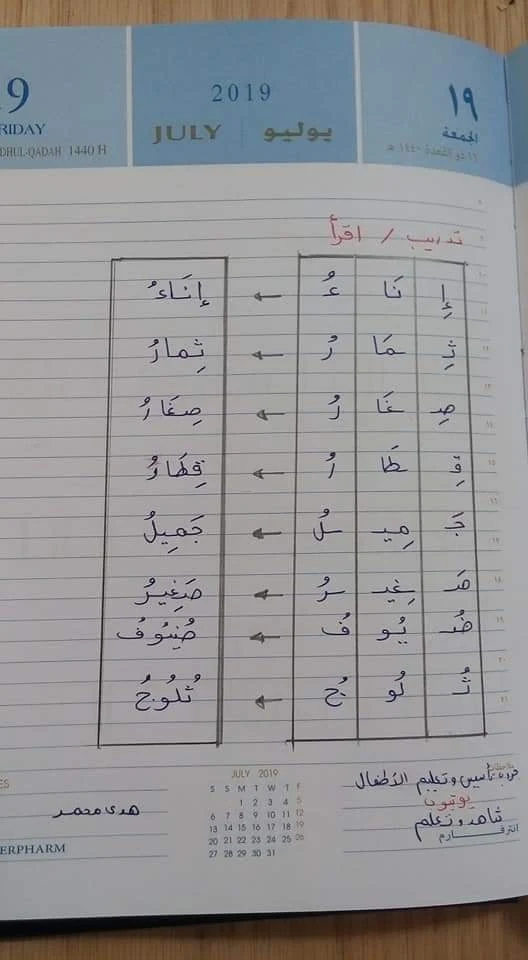 19 2019 ١٩
FRIDAY JULY يوليو الجمعة
DHUL-QADAH 1440 H ١٦ ذو القعدة ١٤٤٠ هـ
تدريب / اقرأ
إِ نَا ءُ ← إِنَاءُ
ثِـ ـمَا رُ ← ثِمارُ
صِـ ـغَا رُ ← صِغَارُ
قِـ ـطَا رُ ← قِطَارُ
جَـ ـمِيـ ـلُ ← جَمِيلُ
صَـ ـغِيـ ـرُ ← صَغِيرُ
ضُـ ـيُو فُ ← ضُيُوفُ
ثُـ ـلُو جُ ← ثُلُوجُ
ملاحظات
تأسيس وتعليم الأطفال
يوتيوب
شاهد وتعلم
هدى محمد
JULY 2019
S S M T W T F
1 2 3 4 5
6 7 8 9 10 11 12
13 14 15 16 17 18 19
20 21 22 23 24 25 26
27 28 29 30 31
ERPHARM